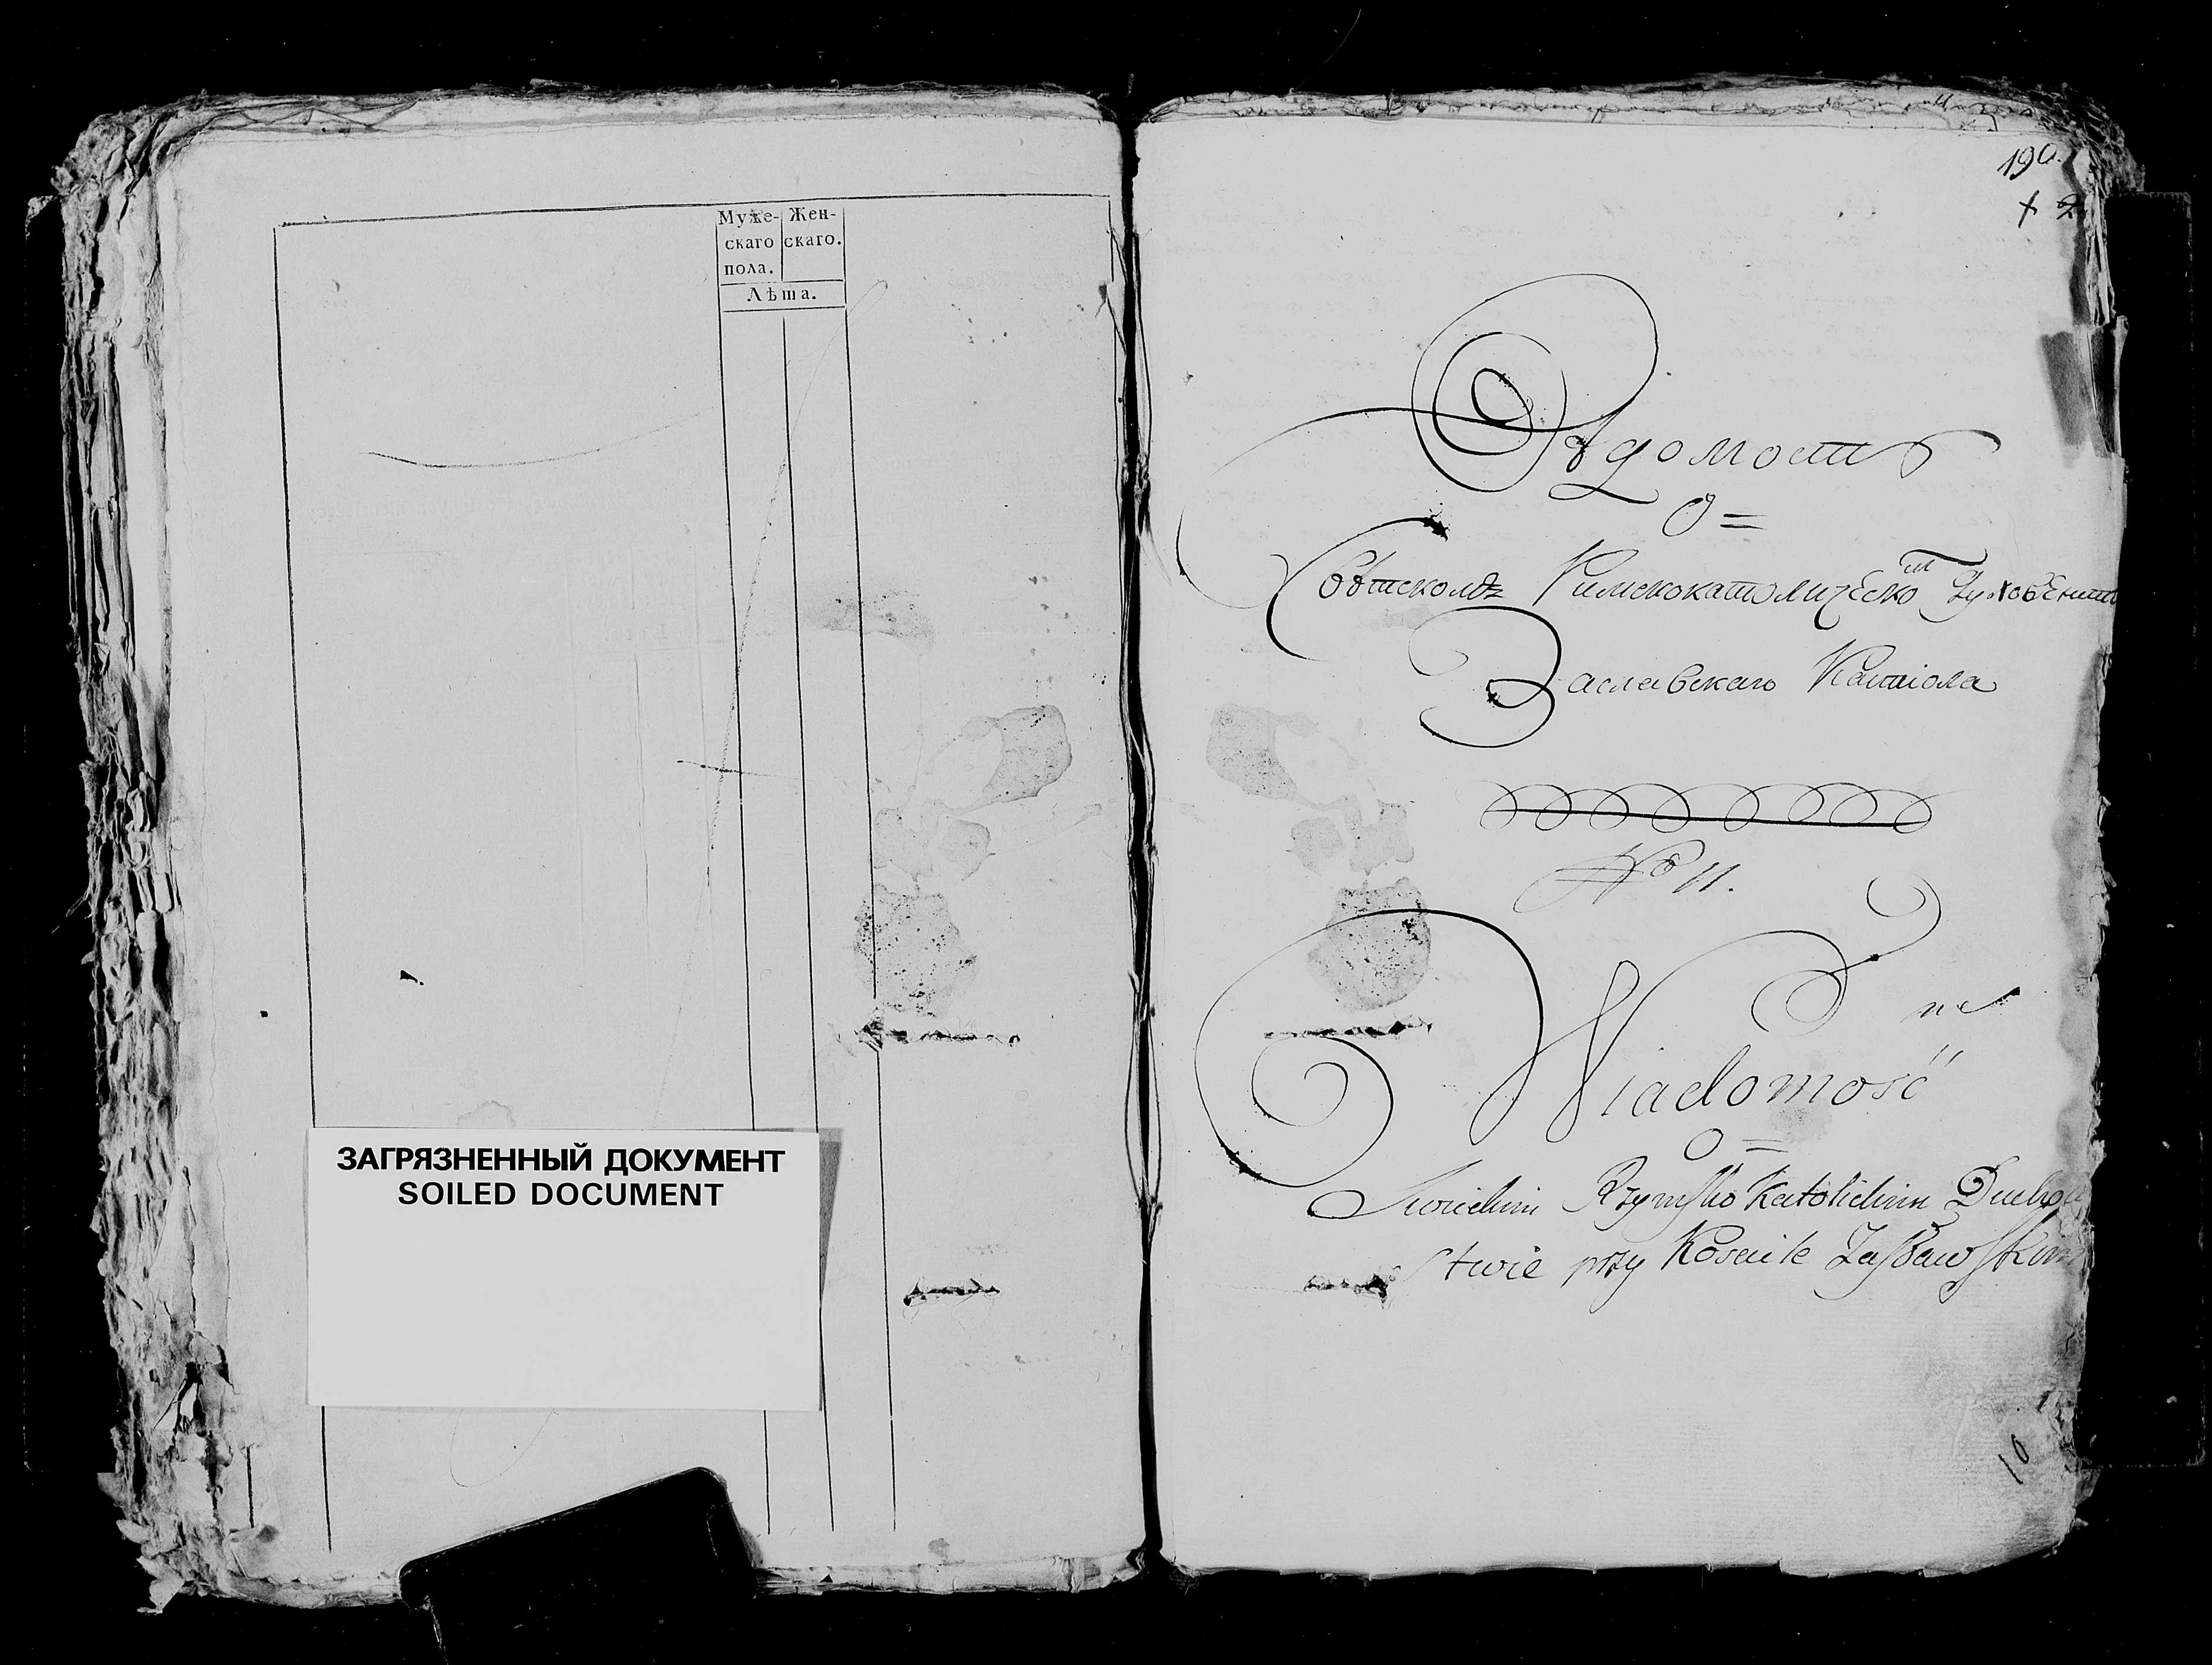 Муже- Жен-
скаго скаго.
пола.
Лѣта.
ЗАГРЯЗНЕННЫЙ ДОКУМЕНТ
SOILED DOCUMENT
190.
Вѣдомость
О=
Свѣтскомъ Римскокатолическом Духовенст
Заславскаго Каштіола
No 11.
Wiadomość
O=
Swieckim Rzymsko Katolickim Ducho
stwie przy Kosciele Zasławskim
10